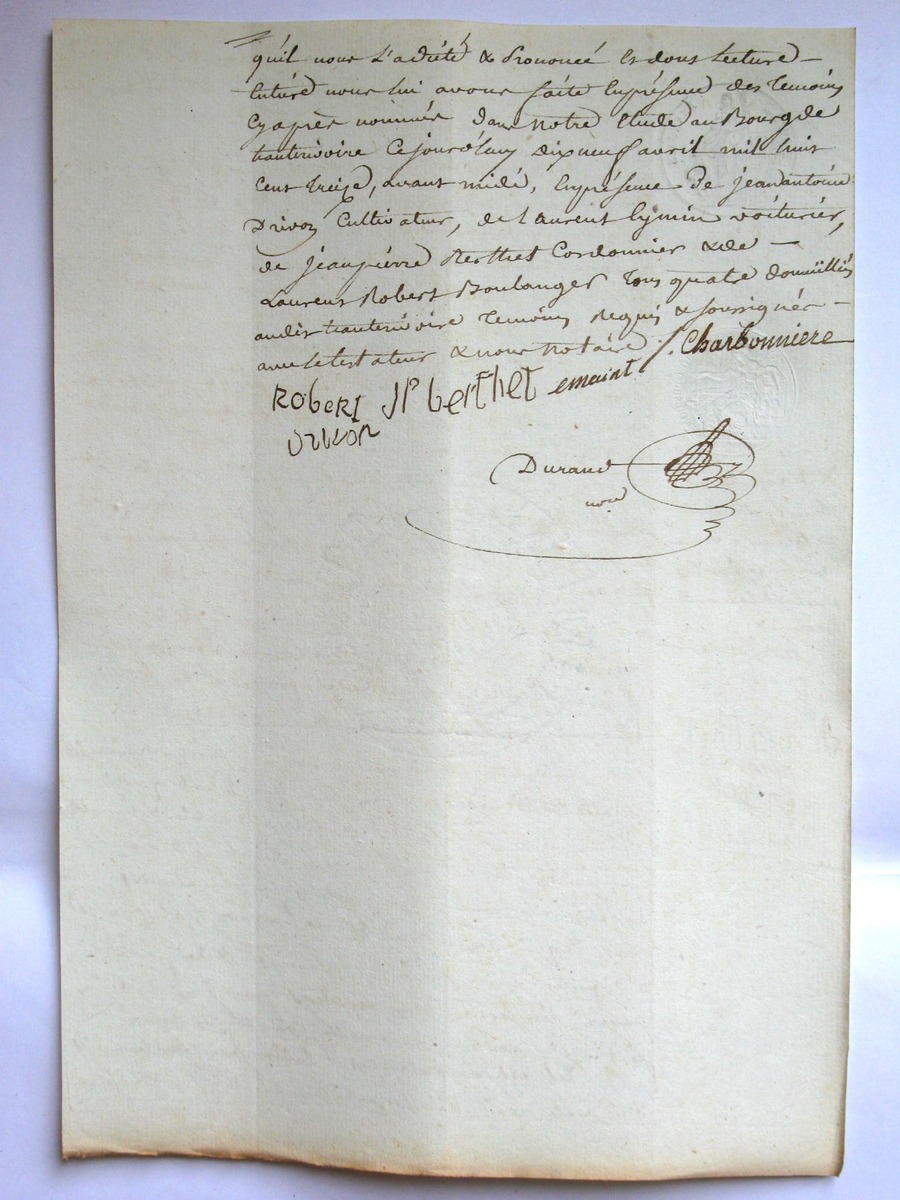 qu'il nous l'a dicté & Prononcé & dont Lecture
Entiere nous lui avons faite En présence des Temoins
Cy après nommés dans notre Etude au Bourg de
hauterivoire Ce jourd'huy dix neuf avril mil huit
Cent treize, avant midi, En présence de jean antoine
Drivon Cultivateur, de Laurent Eymin voiturier,
de jean pierre Berthet Cordonnier & de
Laurent Robert Boulanger Tous quatre domiciliés
audit hauterivoire Temoins Requis & soussignés
avec le testateur & nous Notaire / . Charbonniere
RobeRt JP berthet emaint
Drivon
Durand
not.re